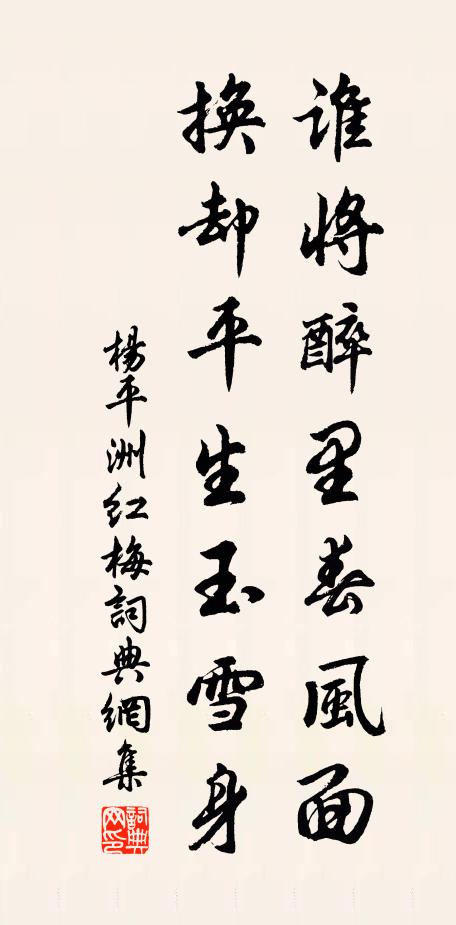 誰將醉里春風面
換却平生玉雪身
楊平洲紅梅詞典網集
詞典網印